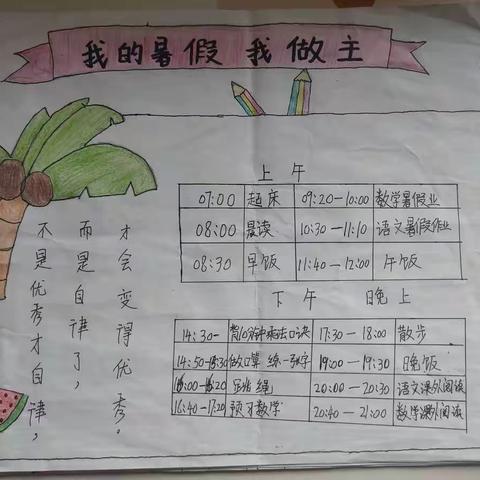 我的暑假 我做主
上午
07:00 起床 09:20-10:00 数学暑假业
08:00 晨读 10:30-11:10 语文暑假作业
08:30 早饭 11:40-12:00 午饭
下午 晚上
14:30- 背10分钟乘法口诀 17:30-18:00 散步
14:50-15:30 做口算 练一张字 19:00-19:30 晚饭
16:20 跳绳 20:00-20:30 语文课外阅读
16:40-17:20 预习数学 20:40-21:00 数学课外阅读
不是优秀才自律,
而是自律了,
才会变得优秀。